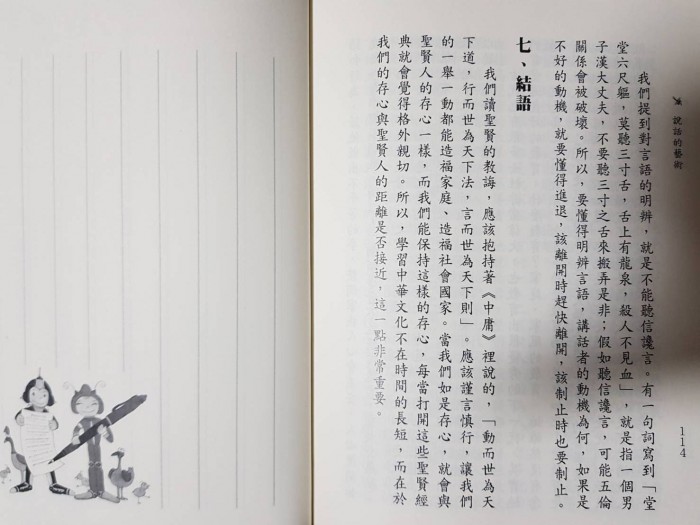 說話的藝術
114
我們提到對言語的明辨，就是不能聽信讒言。有一句詞寫到「堂
堂六尺軀，莫聽三寸舌，舌上有龍泉，殺人不見血」，就是指一個男
子漢大丈夫，不要聽三寸之舌來搬弄是非；假如聽信讒言，可能五倫
關係會被破壞。所以，要懂得明辨言語，講話者的動機為何，如果是
不好的動機，就要懂得進退，該離開時趕快離開，該制止時也要制止。
七、結語
我們讀聖賢的教誨，應該抱持著《中庸》裡說的，「動而世為天
下道，行而世為天下法，言而世為天下則」。應該謹言慎行，讓我們
的一舉一動都能造福家庭、造福社會國家。當我們如是存心，就會與
聖賢人的存心一樣，而我們能保持這樣的存心，每當打開這些聖賢經
典就會覺得格外親切。所以，學習中華文化不在時間的長短，而在於
我們的存心與聖賢人的距離是否接近，這一點非常重要。